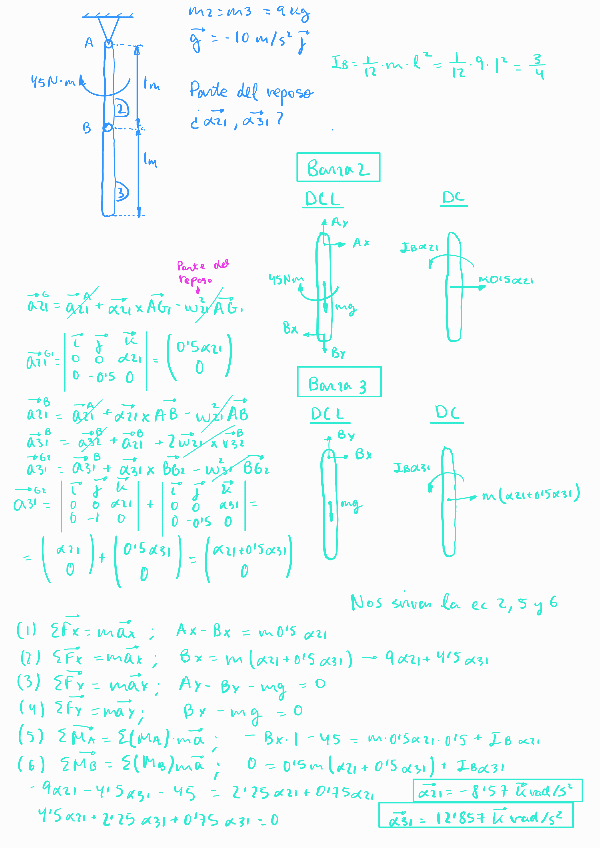 m2 = m3 = 9 kg
g = -10 m/s² j
A
45 N·m
1m
2
B
1m
3
Parte del reposo
¿ α21, α31 ?
IB = 1/12 · m · l² = 1/12 · 9 · 1² = 3/4
Barra 2
DCL
DC
Ay
Ax
45Nm
mg
Bx
By
IBα21
m0'5α21
Parte del reposo
a21^G1 = a21^A + α21 x AG1 - w21² AG1
a21^G1 = | i j k | = ( 0'5α21 )
0 0 α21
0 -0'5 0
0
a21^B = a21^A + α21 x AB - w21² AB
a31^B = a32^B + a21^B + 2w21 x v32^B
a31^G2 = a31^B + α31 x BG2 - w31² BG2
a31^G2 = | i j k | + | i j k | =
0 0 α21 0 0 α31
0 -1 0 0 -0'5 0
= ( α21 ) + ( 0'5α31 ) = ( α21+0'5α31 )
0 0 0
Barra 3
DCL
DC
By
Bx
mg
IBα31
m(α21+0'5α31)
Nos sirven la ec 2, 5 y 6
(1) ΣFx = max ; Ax - Bx = m0'5 α21
(2) ΣFx = max ; Bx = m(α21+0'5α31) → 9α21+4'5α31
(3) ΣFy = may ; Ay - By - mg = 0
(4) ΣFy = may ; By - mg = 0
(5) ΣMA = Σ(MA)·ma ; -Bx·1 - 45 = m·0'5α21·0'5 + IBα21
(6) ΣMB = Σ(MB)ma ; 0 = 0'5m(α21+0'5α31) + IBα31
-9α21 - 4'5α31 - 45 = 2'25α21 + 0'75α21
α21 = -8'57 k rad/s²
4'5α21 + 2'25α31 + 0'75α31 = 0
α31 = 12'857 k rad/s²